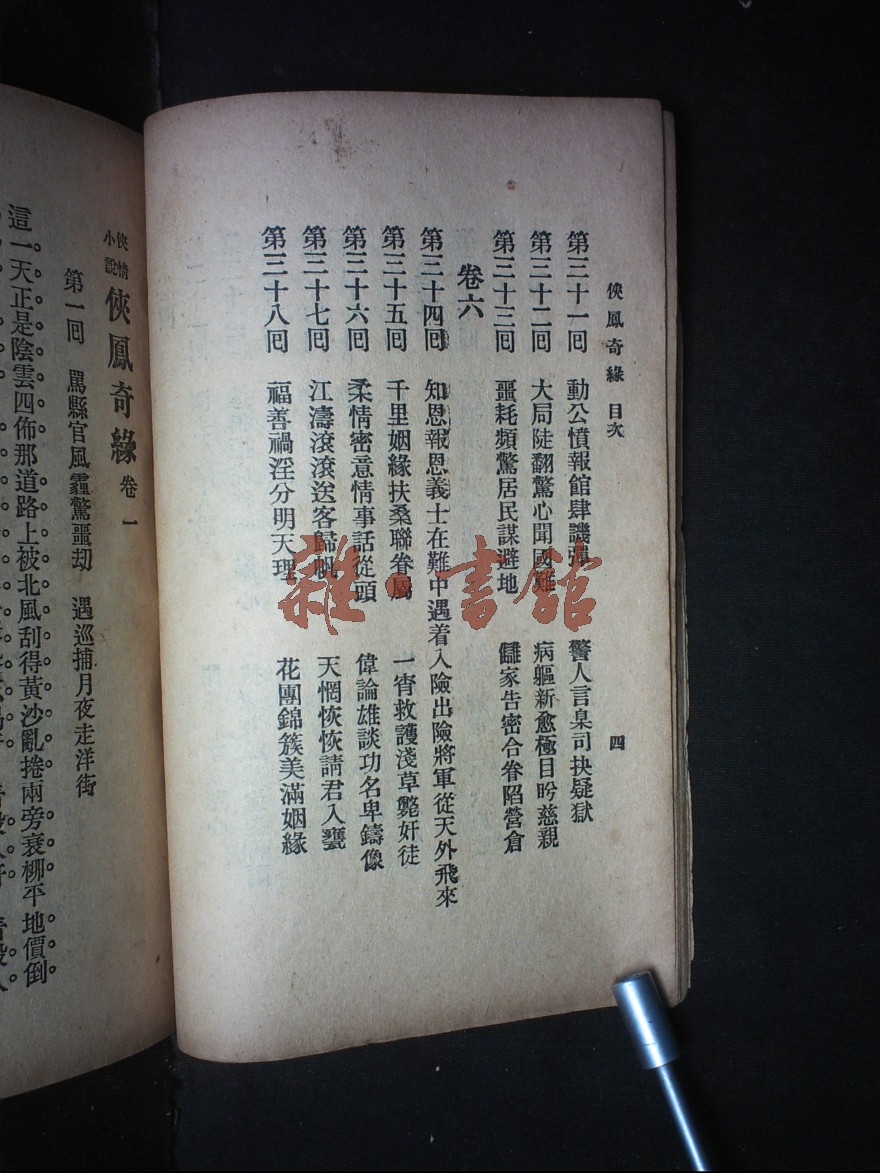 俠鳳奇緣 目次
四
第三十一回 動公憤報館肆譏彈 警人言臬司抉疑獄
第三十二回 大局陡翻驚心聞國難 病軀新愈極目盻慈親
第三十三回 噩耗頻驚居民謀避地 讎家告密合眷陷營倉
卷六
第三十四回 知恩報恩義士在難中遇着 入險出險將軍從天外飛來
第三十五回 千里姻緣扶桑聯眷屬 一宵救護淺草斃奸徒
第三十六回 柔情密意情事話從頭 偉論雄談功名卑鑄像
第三十七回 江濤滾滾送客歸帆 天惘恢恢請君入甕
第三十八回 福善禍淫分明天理 花團錦簇美滿姻緣
俠情小說 俠鳳奇緣 卷一
第一回 罵縣官風霾驚噩劫 遇巡捕月夜走洋街
這一天正是陰雲四佈那道路上被北風刮得黃沙亂捲兩旁衰柳平地價倒
雜·書館